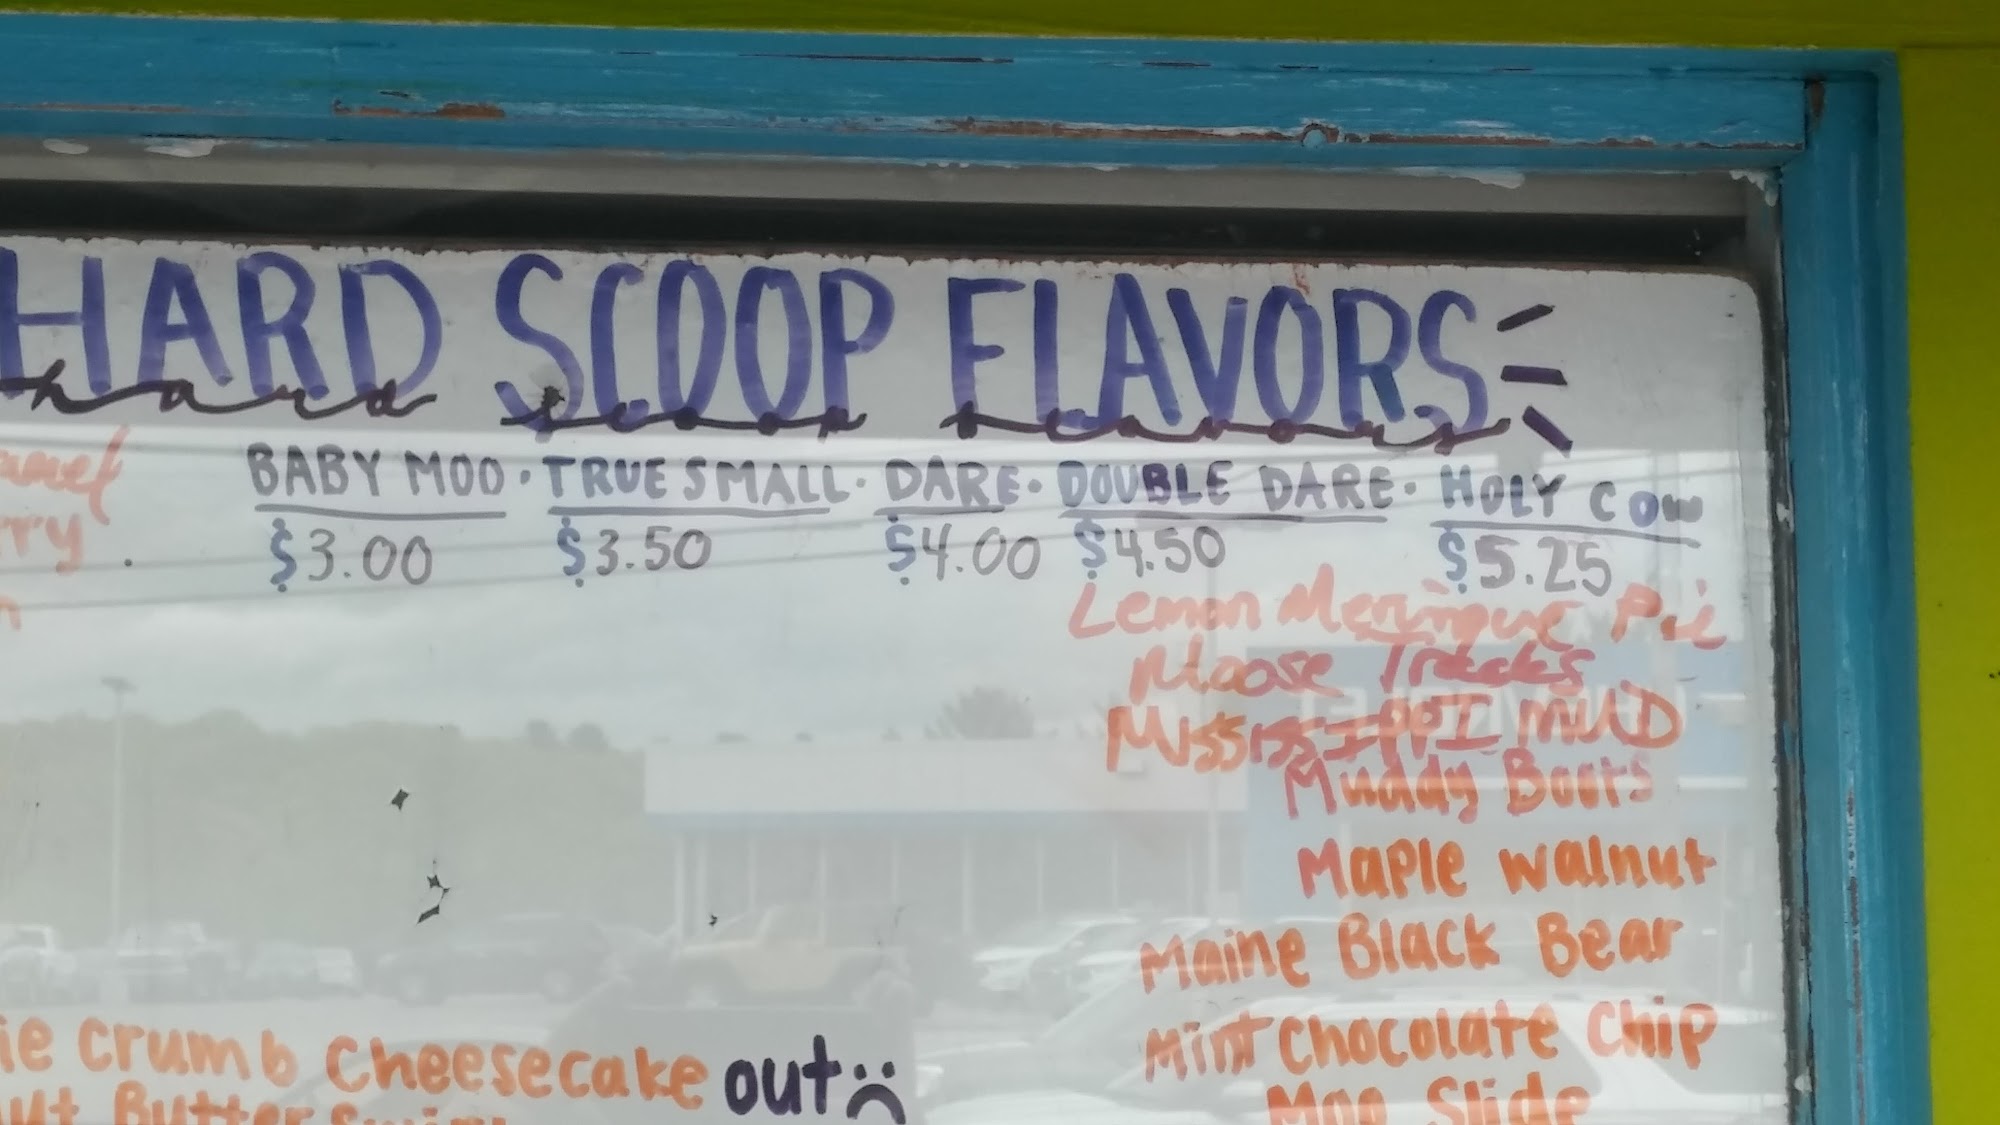 HARD SCOOP FLAVORS
hard scoop flavors
BABY MOO · TRUE SMALL · DARE · DOUBLE DARE · HOLY COW
$3.00 $3.50 $4.00 $4.50 $5.25
Lemon Meringue Pie
Moose Tracks
MississIppI MUD
Muddy Boots
Maple walnut
Maine Black Bear
Mint Chocolate Chip
Moo Slide
ie Crumb Cheesecake out
ut Butter Swirl